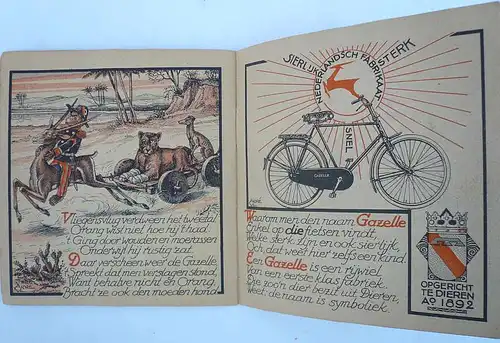 Vliegensvlug verdween het tweetal
Orang wist niet hoe hij 't had.
't Ging door wouden en moerassen
Onderwijl hij rustig zat.
Daar verscheen weer de Gazelle
't Spreekt dat men verslagen stond,
Want behalve nicht en Orang,
Bracht ze ook den moeden hond.
SIERLIJK
STERK
NEDERLANDSCH FABRIKAAT
SNEL
GAZELLE
Waarom men den naam Gazelle
Enkel op die fietsen vindt,
Welke sterk zijn en ook sierlijk,
Och dat weet hier zelfs een kind.
Een Gazelle is een rijwiel
Van een eerste klas fabriek.
Elke zoo'n dier bezit uit Dieren,
Weet, de naam is symboliek.
OPGERICHT
TE DIEREN
Ao 1892